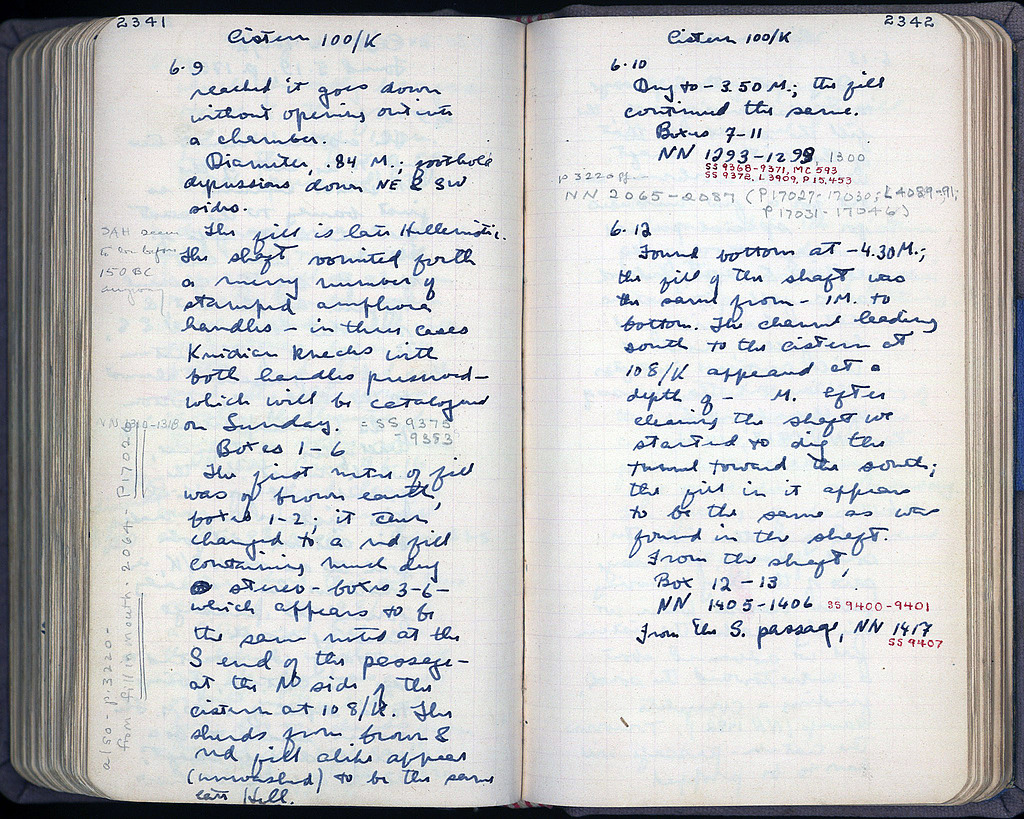 2341
Cistern 100/K
6·9
reached it goes down
without opening out into
a chamber.
Diameter, .84 M.; foothold
depressions down NE & SW
sides.
The fill is late Hellenistic.
The shaft vomited forth
a merry number of
stamped amphora
handles – in three cases
Knidian necks with
both handles preserved –
which will be catalogued
on Sunday. = SS 9375
- 9383
Boxes 1-6
The first metre of fill
was of brown earth,
boxes 1-2; it then
changed to a red fill
containing much dug
stereo - boxes 3-6 -
which appears to be
the same noted at the
S end of the passage -
at the N side of the
cistern at 108/K. The
sherds from brown &
red fill alike appear
(unwashed) to be the same
late Hell.
to be before
150 BC
anyway
NN 1310-1318
also - p. 3220 -
from fill in mouth. 2064 - P17026
2342
Cistern 100/K
6·10
Dug to - 3.50 M.; the fill
continued the same.
Boxes 7-11
NN 1293-1299, 1300
SS 9368-9371, MC 593
SS 9372, L 3909, P 15,453
p 3220 ff
NN 2065-2087 (P17027-17030; L 4089-91;
P17031-17046)
6·12
Found bottom at -4.30 M.;
the fill of the shaft was
the same from - 1M. to
bottom. The channel leading
south to the cistern at
108/K appeared at a
depth of - M. After
cleaning the shaft we
started to dig the
tunnel toward the south;
the fill in it appears
to be the same as was
found in the shaft.
From the shaft,
Box 12-13
NN 1405-1406 SS 9400-9401
From the S. passage, NN 1417
SS 9407